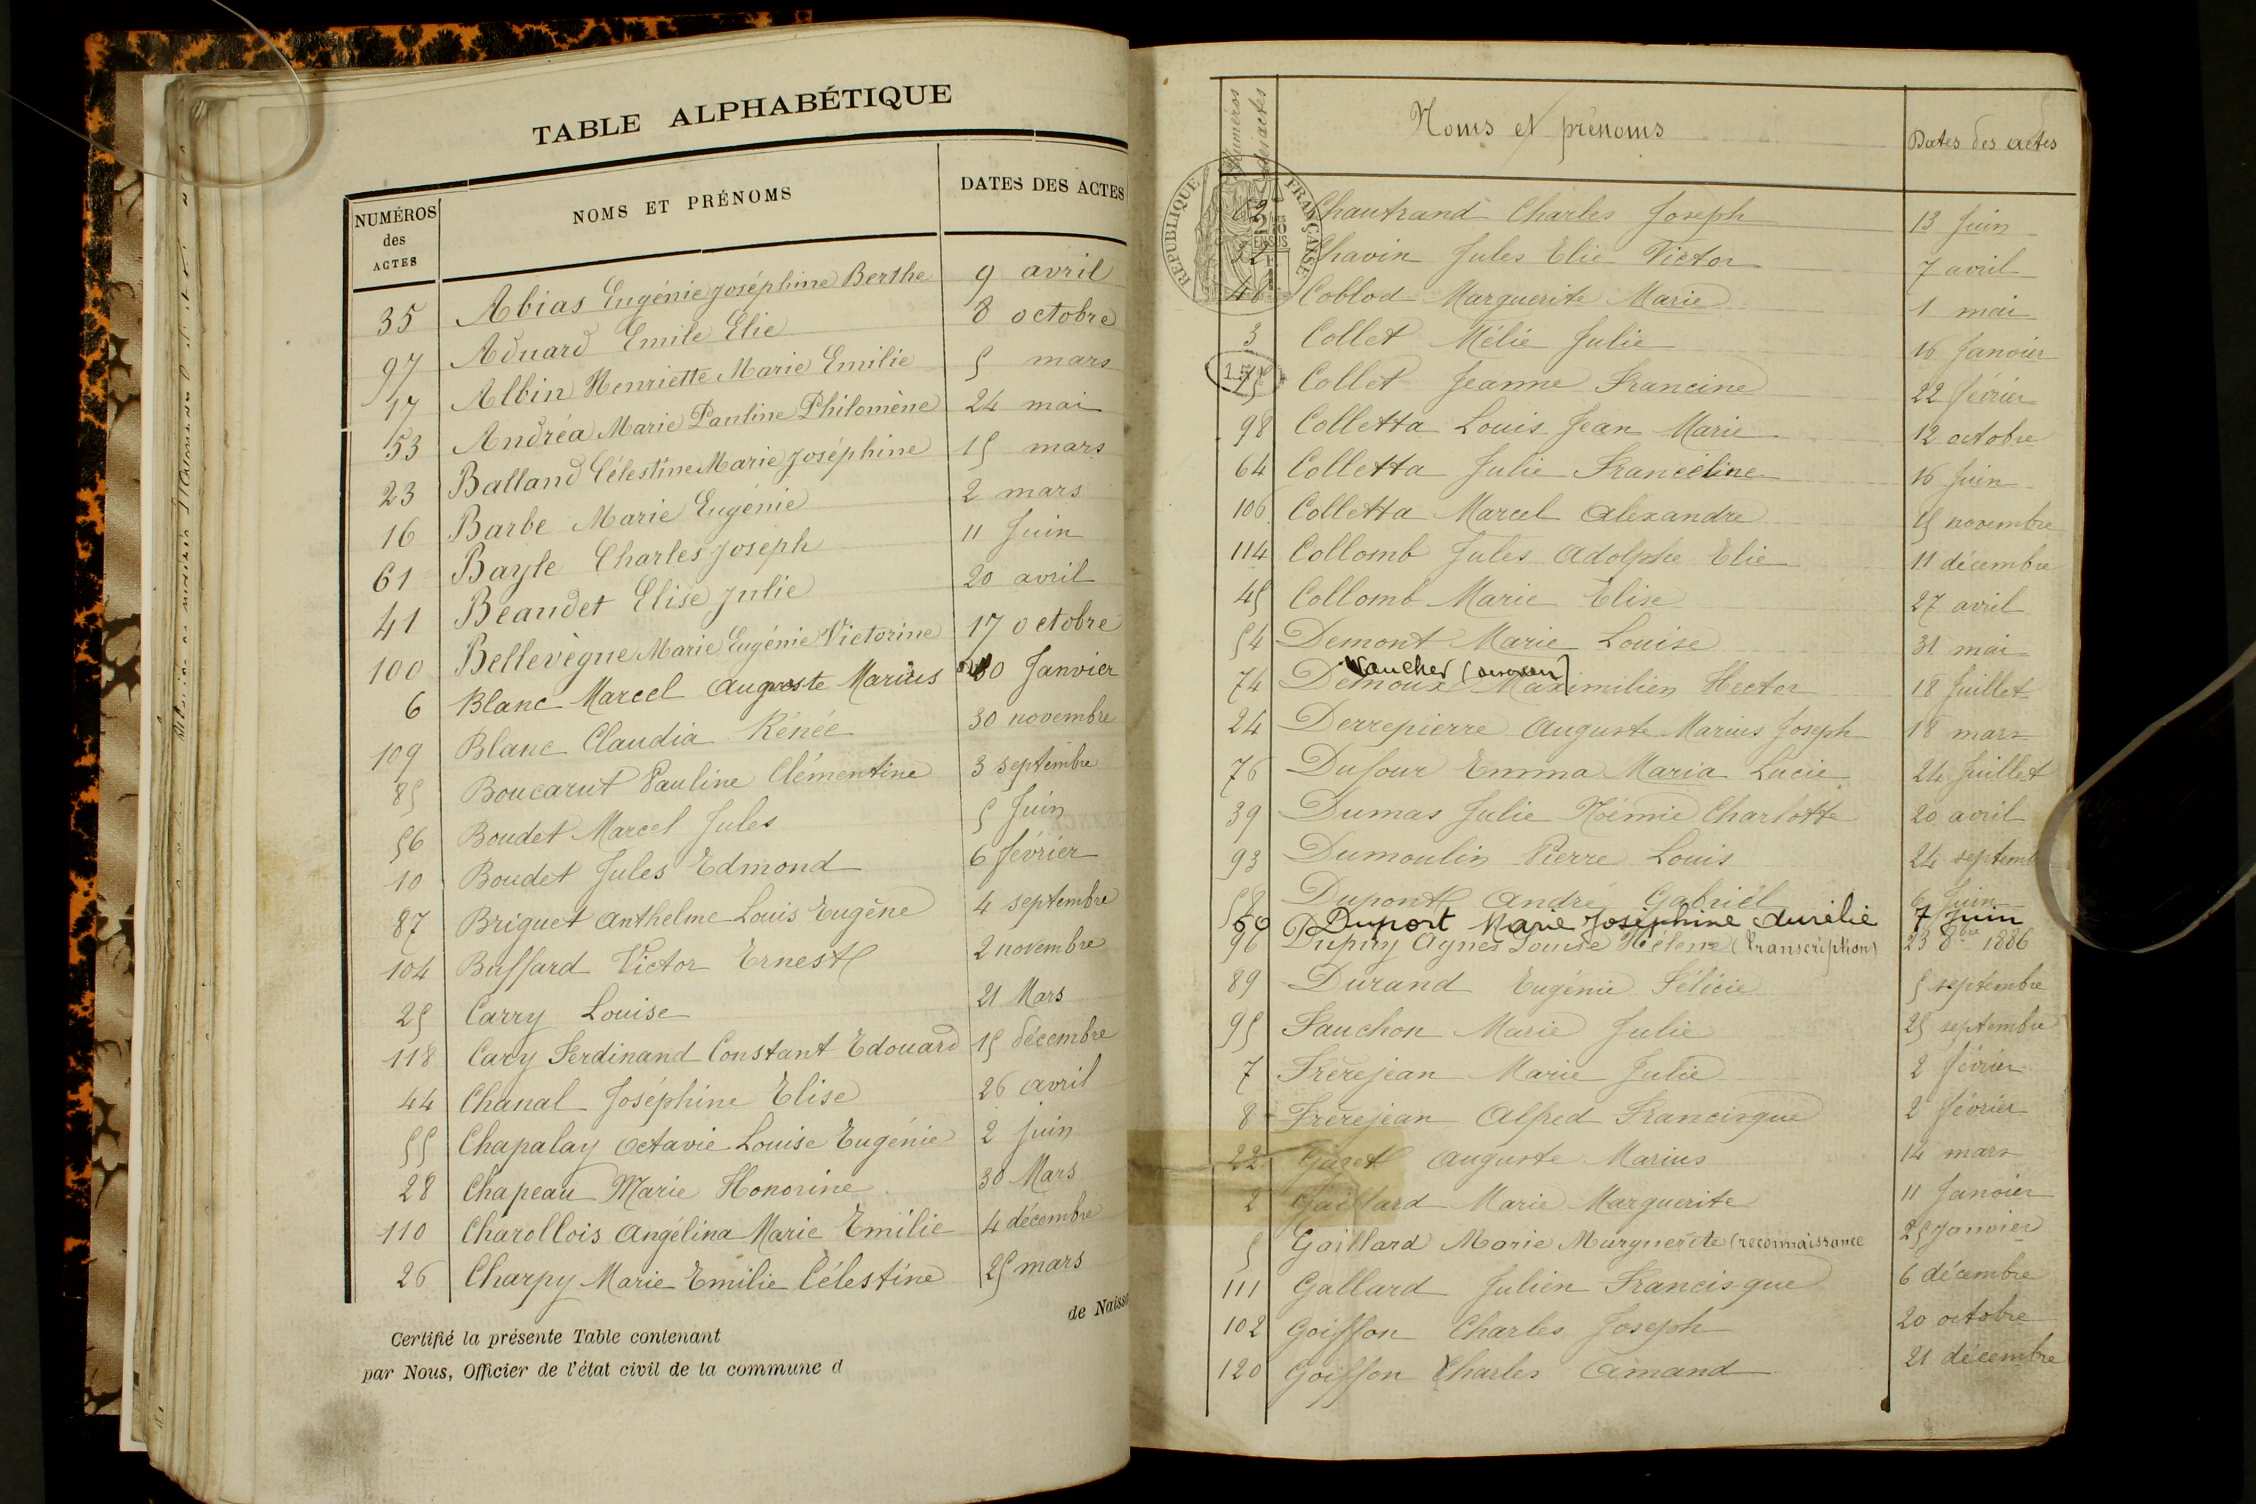 TABLE ALPHABÉTIQUE
NUMÉROS des ACTES NOMS ET PRÉNOMS DATES DES ACTES
35 Abias Eugénie Joséphine Berthe 9 avril
97 Aduard Emile Elie 8 octobre
17 Albin Henriette Marie Emilie 5 mars
53 Andréa Marie Pauline Philomène 24 mai
23 Balland Célestine Marie Joséphine 15 mars
16 Barbe Marie Eugénie 2 mars
61 Bayle Charles Joseph 11 Juin
41 Beaudet Elise Julie 20 avril
100 Bellevègue Marie Eugénie Victorine 17 octobre
6 Blanc Marcel Auguste Marius 30 Janvier
109 Blanc Claudia Rénée 30 novembre
85 Boucarut Pauline Clémentine 3 septembre
56 Boudet Marcel Jules 5 Juin
10 Boudet Jules Edmond 6 février
87 Briguet Anthelme Louis Eugène 4 septembre
104 Buffard Victor Ernest 2 novembre
25 Carry Louise 21 Mars
118 Cary Ferdinand Constant Edouard 15 décembre
44 Chanal Joséphine Elise 26 avril
55 Chapalay Octavie Louise Eugénie 2 juin
28 Chapeau Marie Honorine 30 Mars
110 Charollois Angélina Marie Emilie 4 décembre
26 Charpy Marie Emilie Célestine 25 mars
de Naiss
Certifié la présente Table contenant
par Nous, Officier de l'état civil de la commune d
Numéros des actes Noms et prénoms Dates des actes
RÉPUBLIQUE FRANÇAISE
62 Chautrand Charles Joseph 13 Juin
Chavin Jules Elie Victor 7 avril
48 Coblod Marguerite Marie 1 mai
3 Collet Mélie Julie 16 Janvier
15 Collet Jeanne Francine 22 février
98 Colletta Louis Jean Marie 12 octobre
64 Colletta Julie Franceline 16 Juin
106 Colletta Marcel Alexandre 15 novembre
114 Collomb Jules Adolphe Elie 11 décembre
45 Collomb Marie Elise 27 avril
54 Demont Marie Louise 31 mai
Vaucher
74 Demoux Maximilien Hector 18 Juillet
24 Derrepierre Auguste Marius Joseph 18 mars
76 Dufour Emma Maria Lucie 24 Juillet
39 Dumas Julie Noémie Charlotte 20 avril
93 Dumoulin Pierre Louis 24 septemb
58 Dupont André Gabriel 6 Juin
60 Duport Marie Joséphine Aurélie 7 Juin
96 Dupuy Agnès Louise Hélène (transcription) 23 8bre 1886
89 Durand Eugénie Félicie 5 septembre
95 Fauchon Marie Julie 25 septembre
7 Frèrejean Marie Julie 2 février
8 Frèrejean Alfred Francisque 2 février
22 Gaget Auguste Marius 14 mars
2 Gaillard Marie Marguerite 11 Janvier
5 Gaillard Marie Marguerite (reconnaissance 25 Janvier
111 Gallard Julien Francisque 6 décembre
102 Goiffon Charles Joseph 20 octobre
120 Goiffon Charles Amand 21 décembre